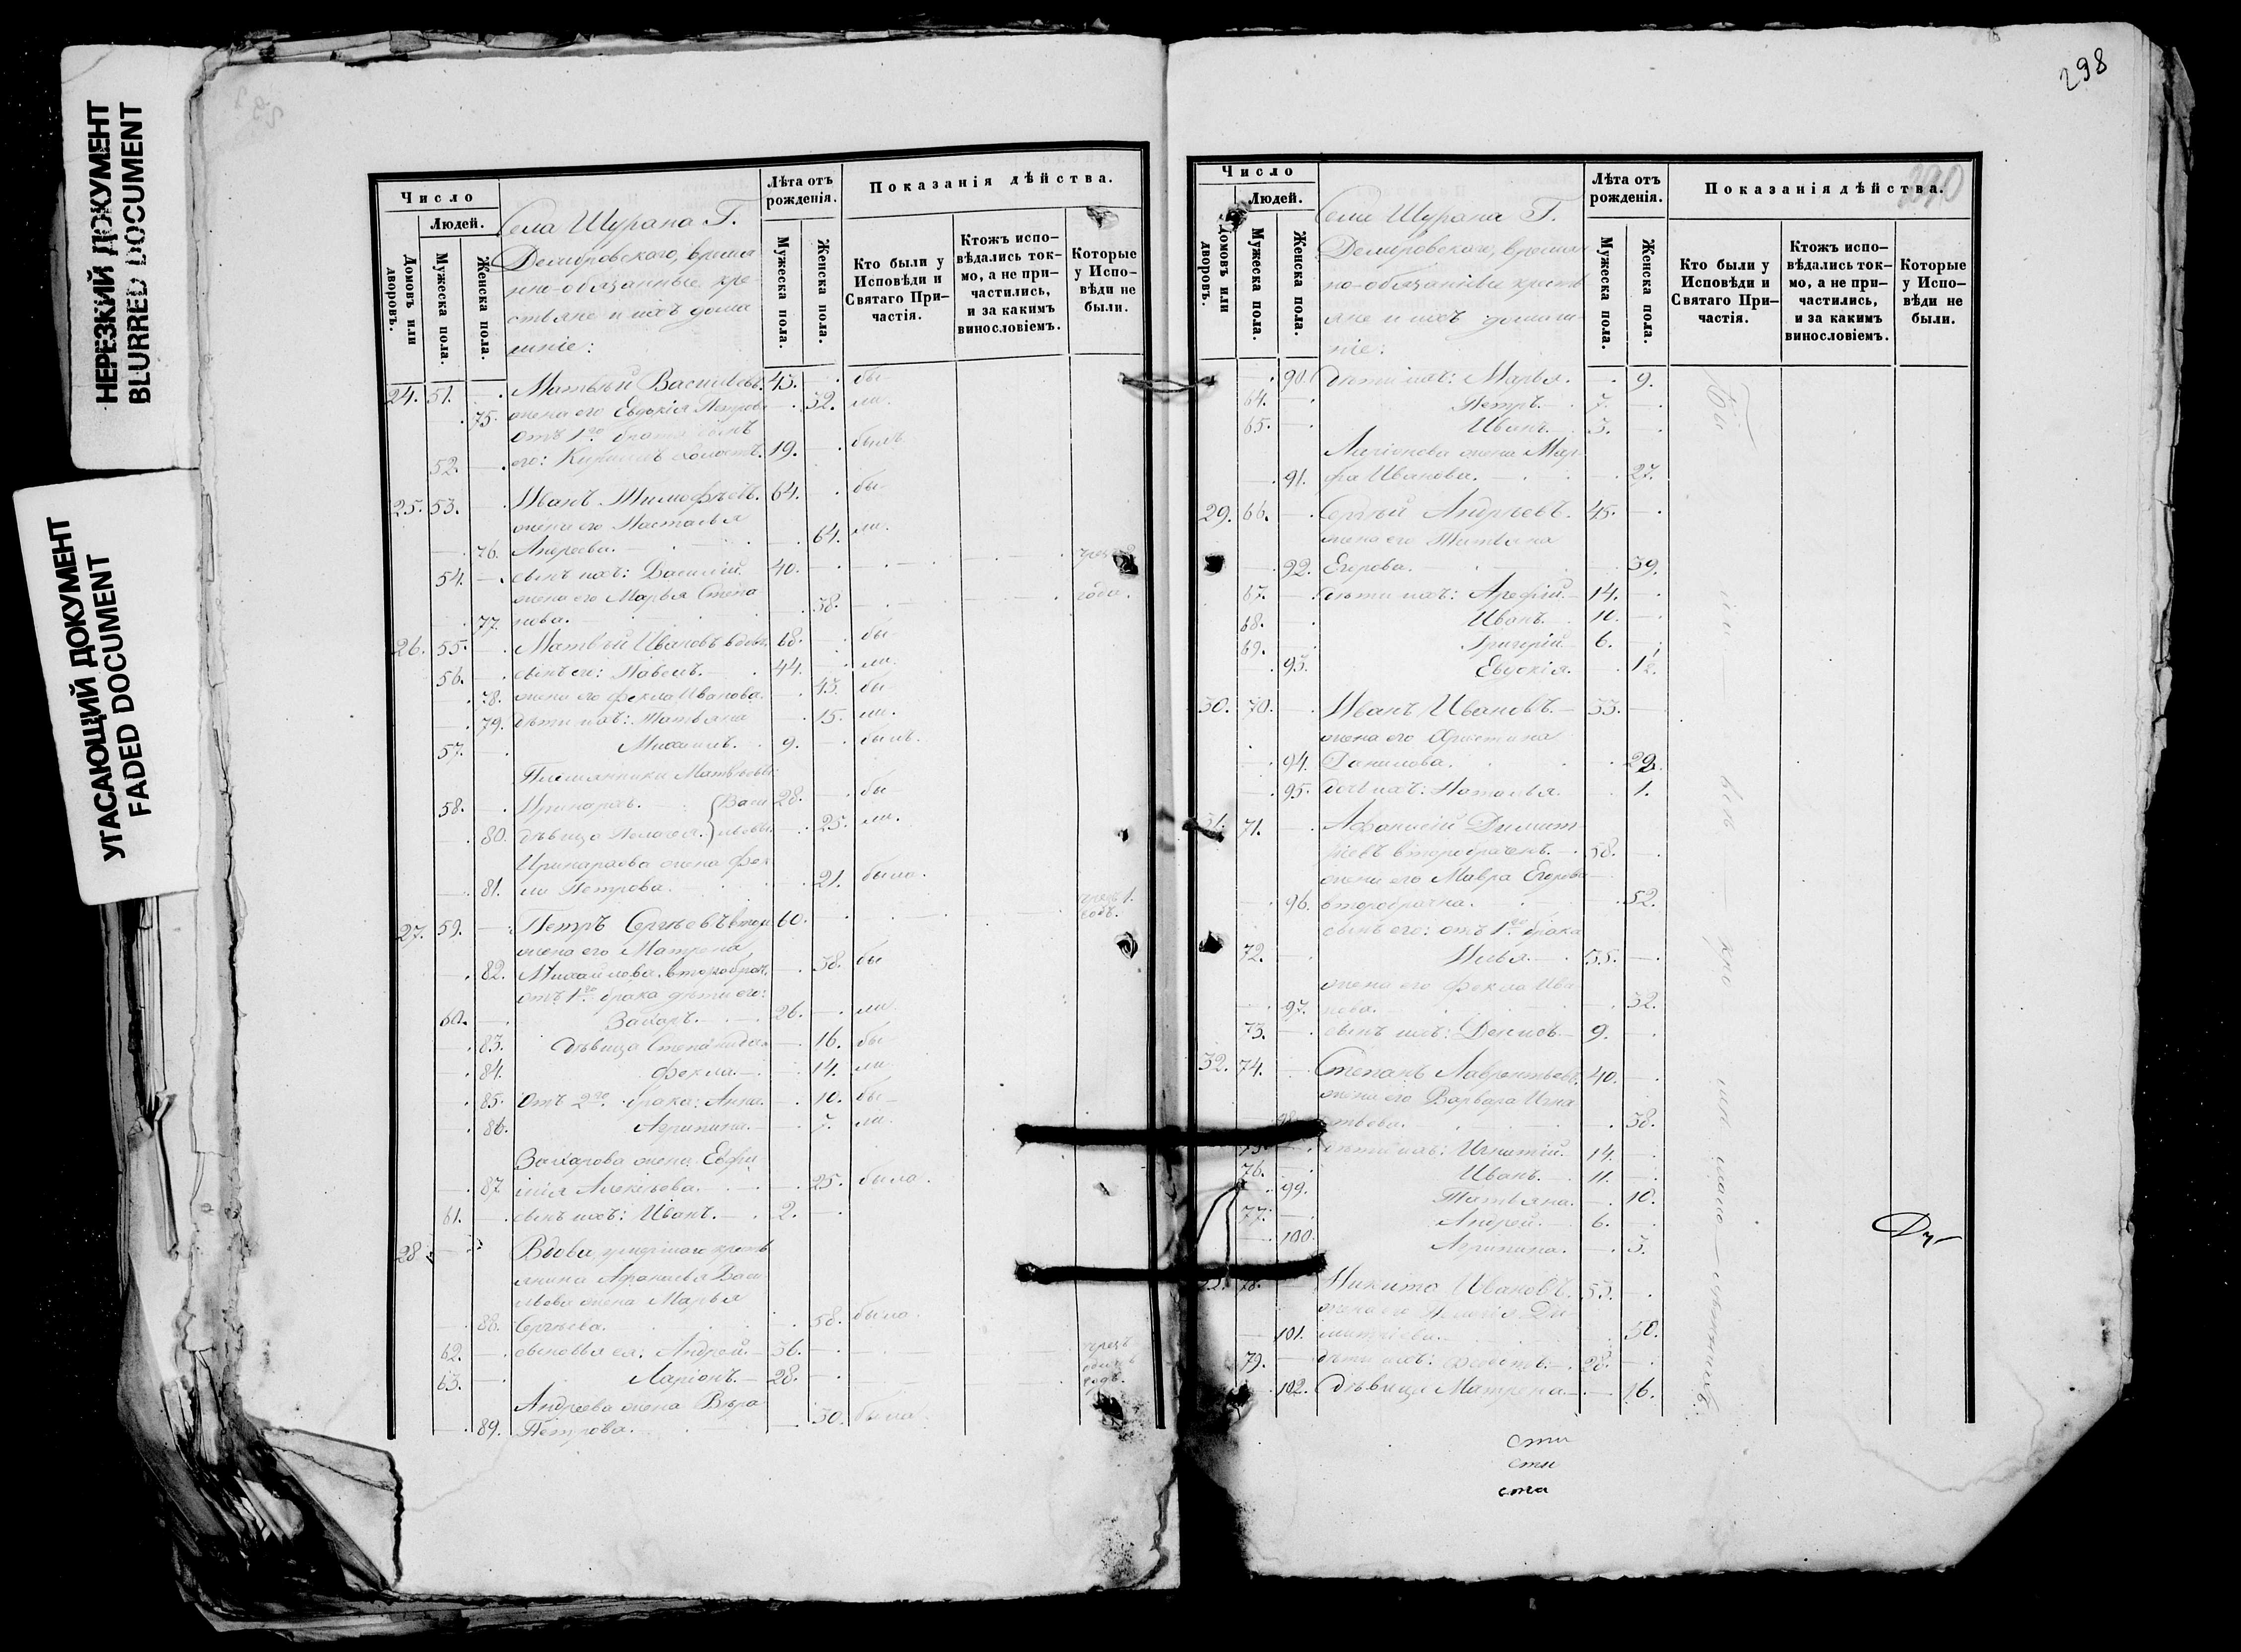 НЕРЕЗКИЙ ДОКУМЕНТ
BLURRED DOCUMENT
УГАСАЮЩИЙ ДОКУМЕНТ
FADED DOCUMENT
Число
Людей.
Домовъ или дворовъ.
Мужеска пола.
Женска пола.
Села Шурана Г.
Демировского, времен
но-обязанные кре
стьяне и ихъ дома
шніе:
Лѣта отъ рожденія.
Мужеска пола.
Женска пола.
Показанія дѣйства.
Кто были у Исповѣди и Святаго При-частія.
Ктожъ испо-вѣдались ток-мо, а не при-частились, и за какимъ винословіемъ.
Которые у Испо-вѣди не были.
24. 51. Матвѣй Васильевъ. 43. бы
75. жена его Евдокія Петрова 32. ли.
отъ 1го брака сынъ
52. его: Кириллъ холостъ. 19. былъ
25. 53. Иванъ Тимофѣевъ. 64. бы
жена его Настасья
76. Андреева. 64. ли.
54. сынъ ихъ: Василій. 40.
жена его Марья Степа
77. нова. 38. года.
26. 55. Матвѣй Ивановъ вдовъ 68. бы
56. сынъ его: Павелъ. 44. ли.
78. жена его Фекла Иванова. 43. бы
79. дѣти ихъ: Татьяна 15. ли.
57. Михаилъ. 9. былъ.
Племянники Матвѣевы:
58. Иринархъ. Васи 28. бы
80. дѣвица Пелагея. льевы 25. ли.
Иринархова жена Фек
81. ла Петрова. 21. была.
27. 59. Петръ Сергѣевъ втор 60. чрезъ 1. годъ.
жена его Матрена
82. Михайлова второбрач. 38. бы
отъ 1го брака дѣти его:
60. Захаръ. 26. ли
83. дѣвица Степанида 16. бы
84. Фекла. 14. ли
85. Отъ 2го брака: Анна. 10. бы
86. Агрипина. 7. ли
Захарова жена Евфи
87. мія Алексѣева. 25. была.
61. сынъ ихъ: Иванъ. 2.
28. Вдова умершаго кресть
янина Афанасья Васи
льева жена Марья
88. Сергѣева. 58. была
62. сыновья ея: Андрей. 36. чрезъ
63. Ларіонъ. 28. годъ.
Андреева жена Вѣра
89. Петрова. 30. была.
298
290
Число
Людей.
Домовъ или дворовъ.
Мужеска пола.
Женска пола.
Села Шурана Г.
Демировского, времен
но-обязанные кресть
яне и ихъ домаш
ніе:
Лѣта отъ рожденія.
Мужеска пола.
Женска пола.
Показанія дѣйства.
Кто были у Исповѣди и Святаго При-частія.
Ктожъ испо-вѣдались ток-мо, а не при-частились, и за какимъ винословіемъ.
Которые у Испо-вѣди не были.
90. дѣти ихъ: Марья. 9.
64. Петръ. 7.
65. Иванъ. 3.
Ларіонова жена Мар
91. фа Иванова. 27.
29. 66. Сергѣй Андреевъ. 45.
жена его Татьяна
92. Егорова. 39.
67. дѣти ихъ: Арефій. 14.
68. Иванъ. 10.
69. Григорій. 6.
93. Евдокія. 12.
30. 70. Иванъ Ивановъ. 33.
жена его Христина
94. Данилова. 29.
95. дочь ихъ: Наталья. 1.
31. 71. Афанасій Димит
ріевъ второбраченъ. 58.
жена его Мавра Егорова
96. второбрачна. 52.
сынъ его: отъ 1го брака
72. Илья. 35.
жена его Фекла Ива
97. нова. 32.
73. сынъ ихъ: Денисъ. 9.
32. 74. Степанъ Лаврентьевъ. 40.
жена его Варвара Игна
98. тьева. 38.
75. дѣти ихъ: Игнатій. 14.
76. Иванъ. 11.
99. Татьяна. 10.
77. Андрей. 6.
100. Агрипина. 3.
33. 78. Никита Ивановъ. 53.
101. 50.
79. дѣти ихъ: 28.
102. дѣвица Матрена. 16.
сти
сти
ста